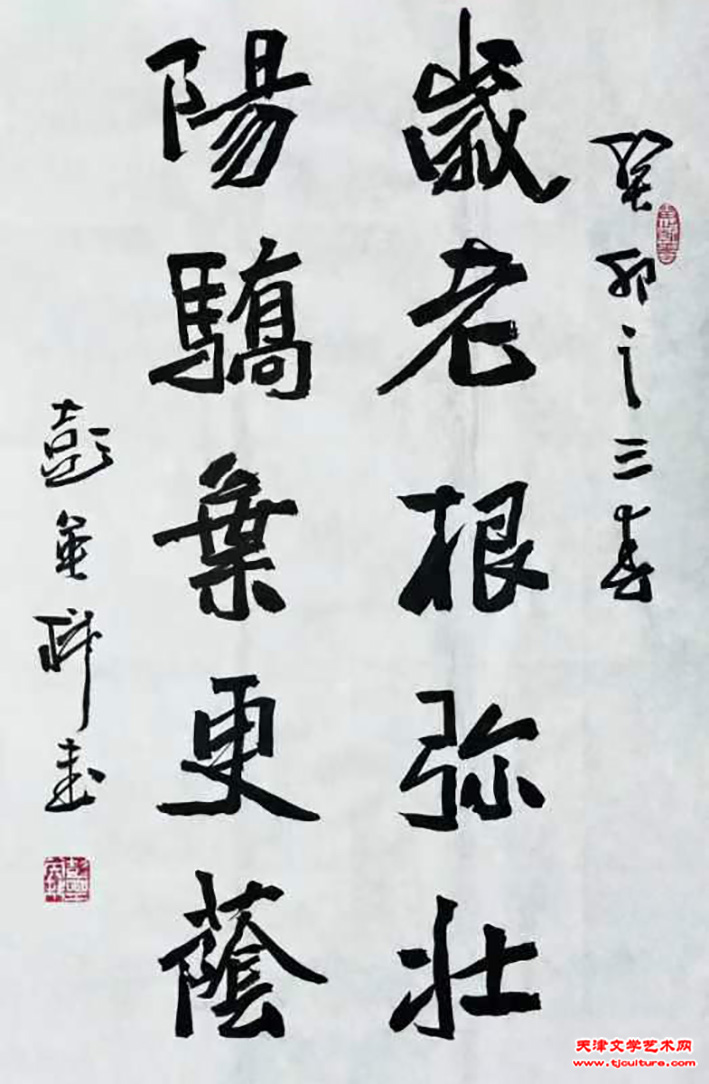 癸卯之三春
歲老根弥壮
陽驕葉更蔭
彭英科书
天津文学艺术网
www.tjculture.com